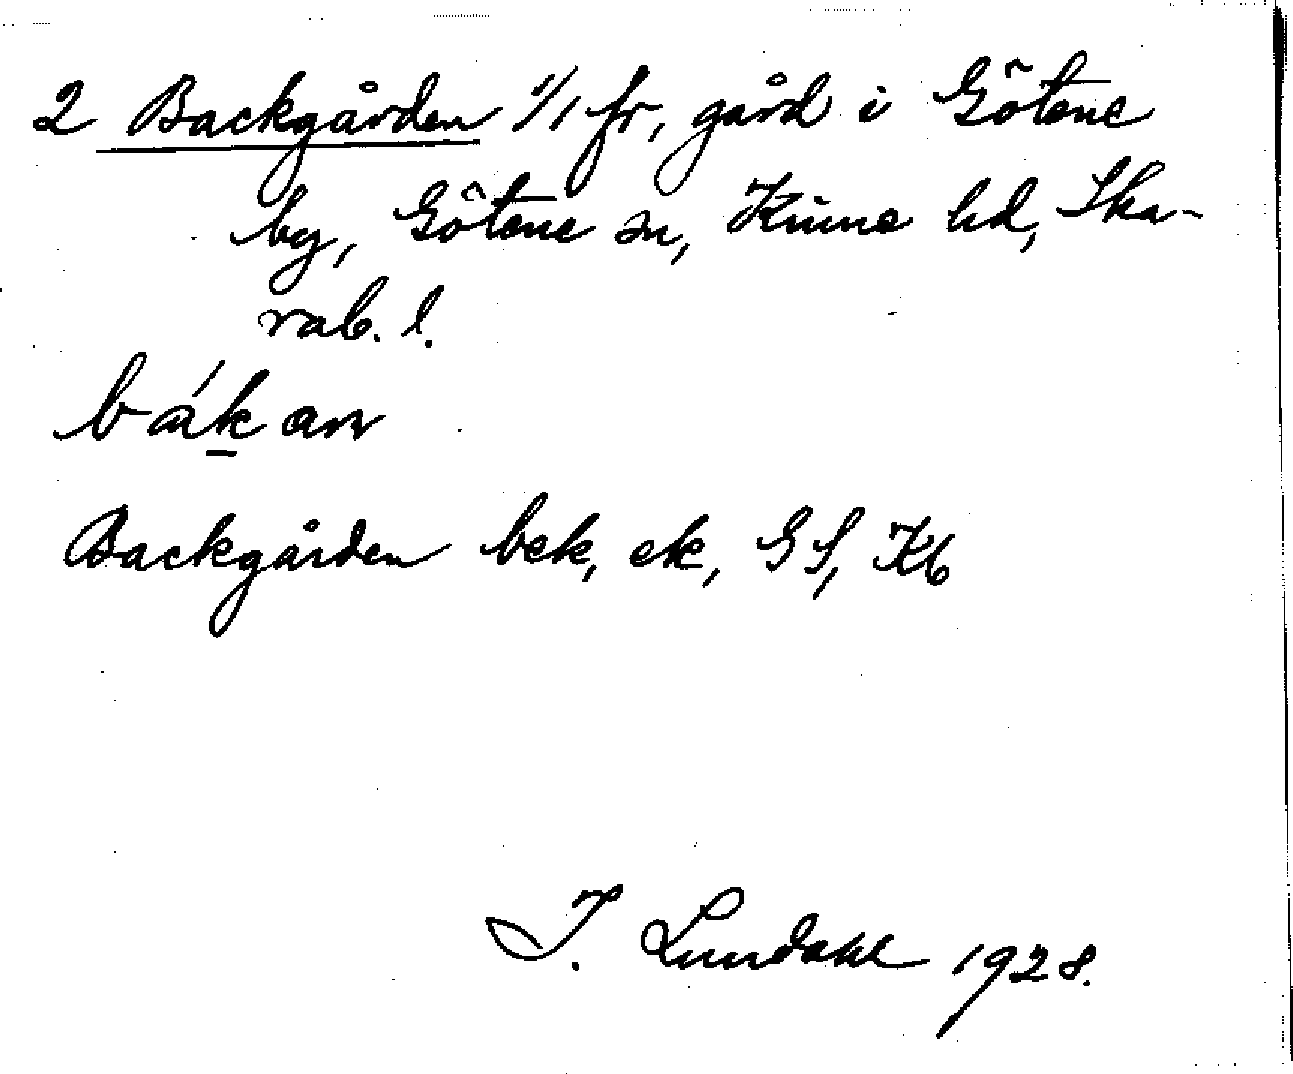 2 Backgården 1/1 fr, gård i Götene
by, Götene sn, Kinne hd, Ska-
rab. l.
bák an
Backgården bek, ek, GS, Kb
I. Lundahl 1928.